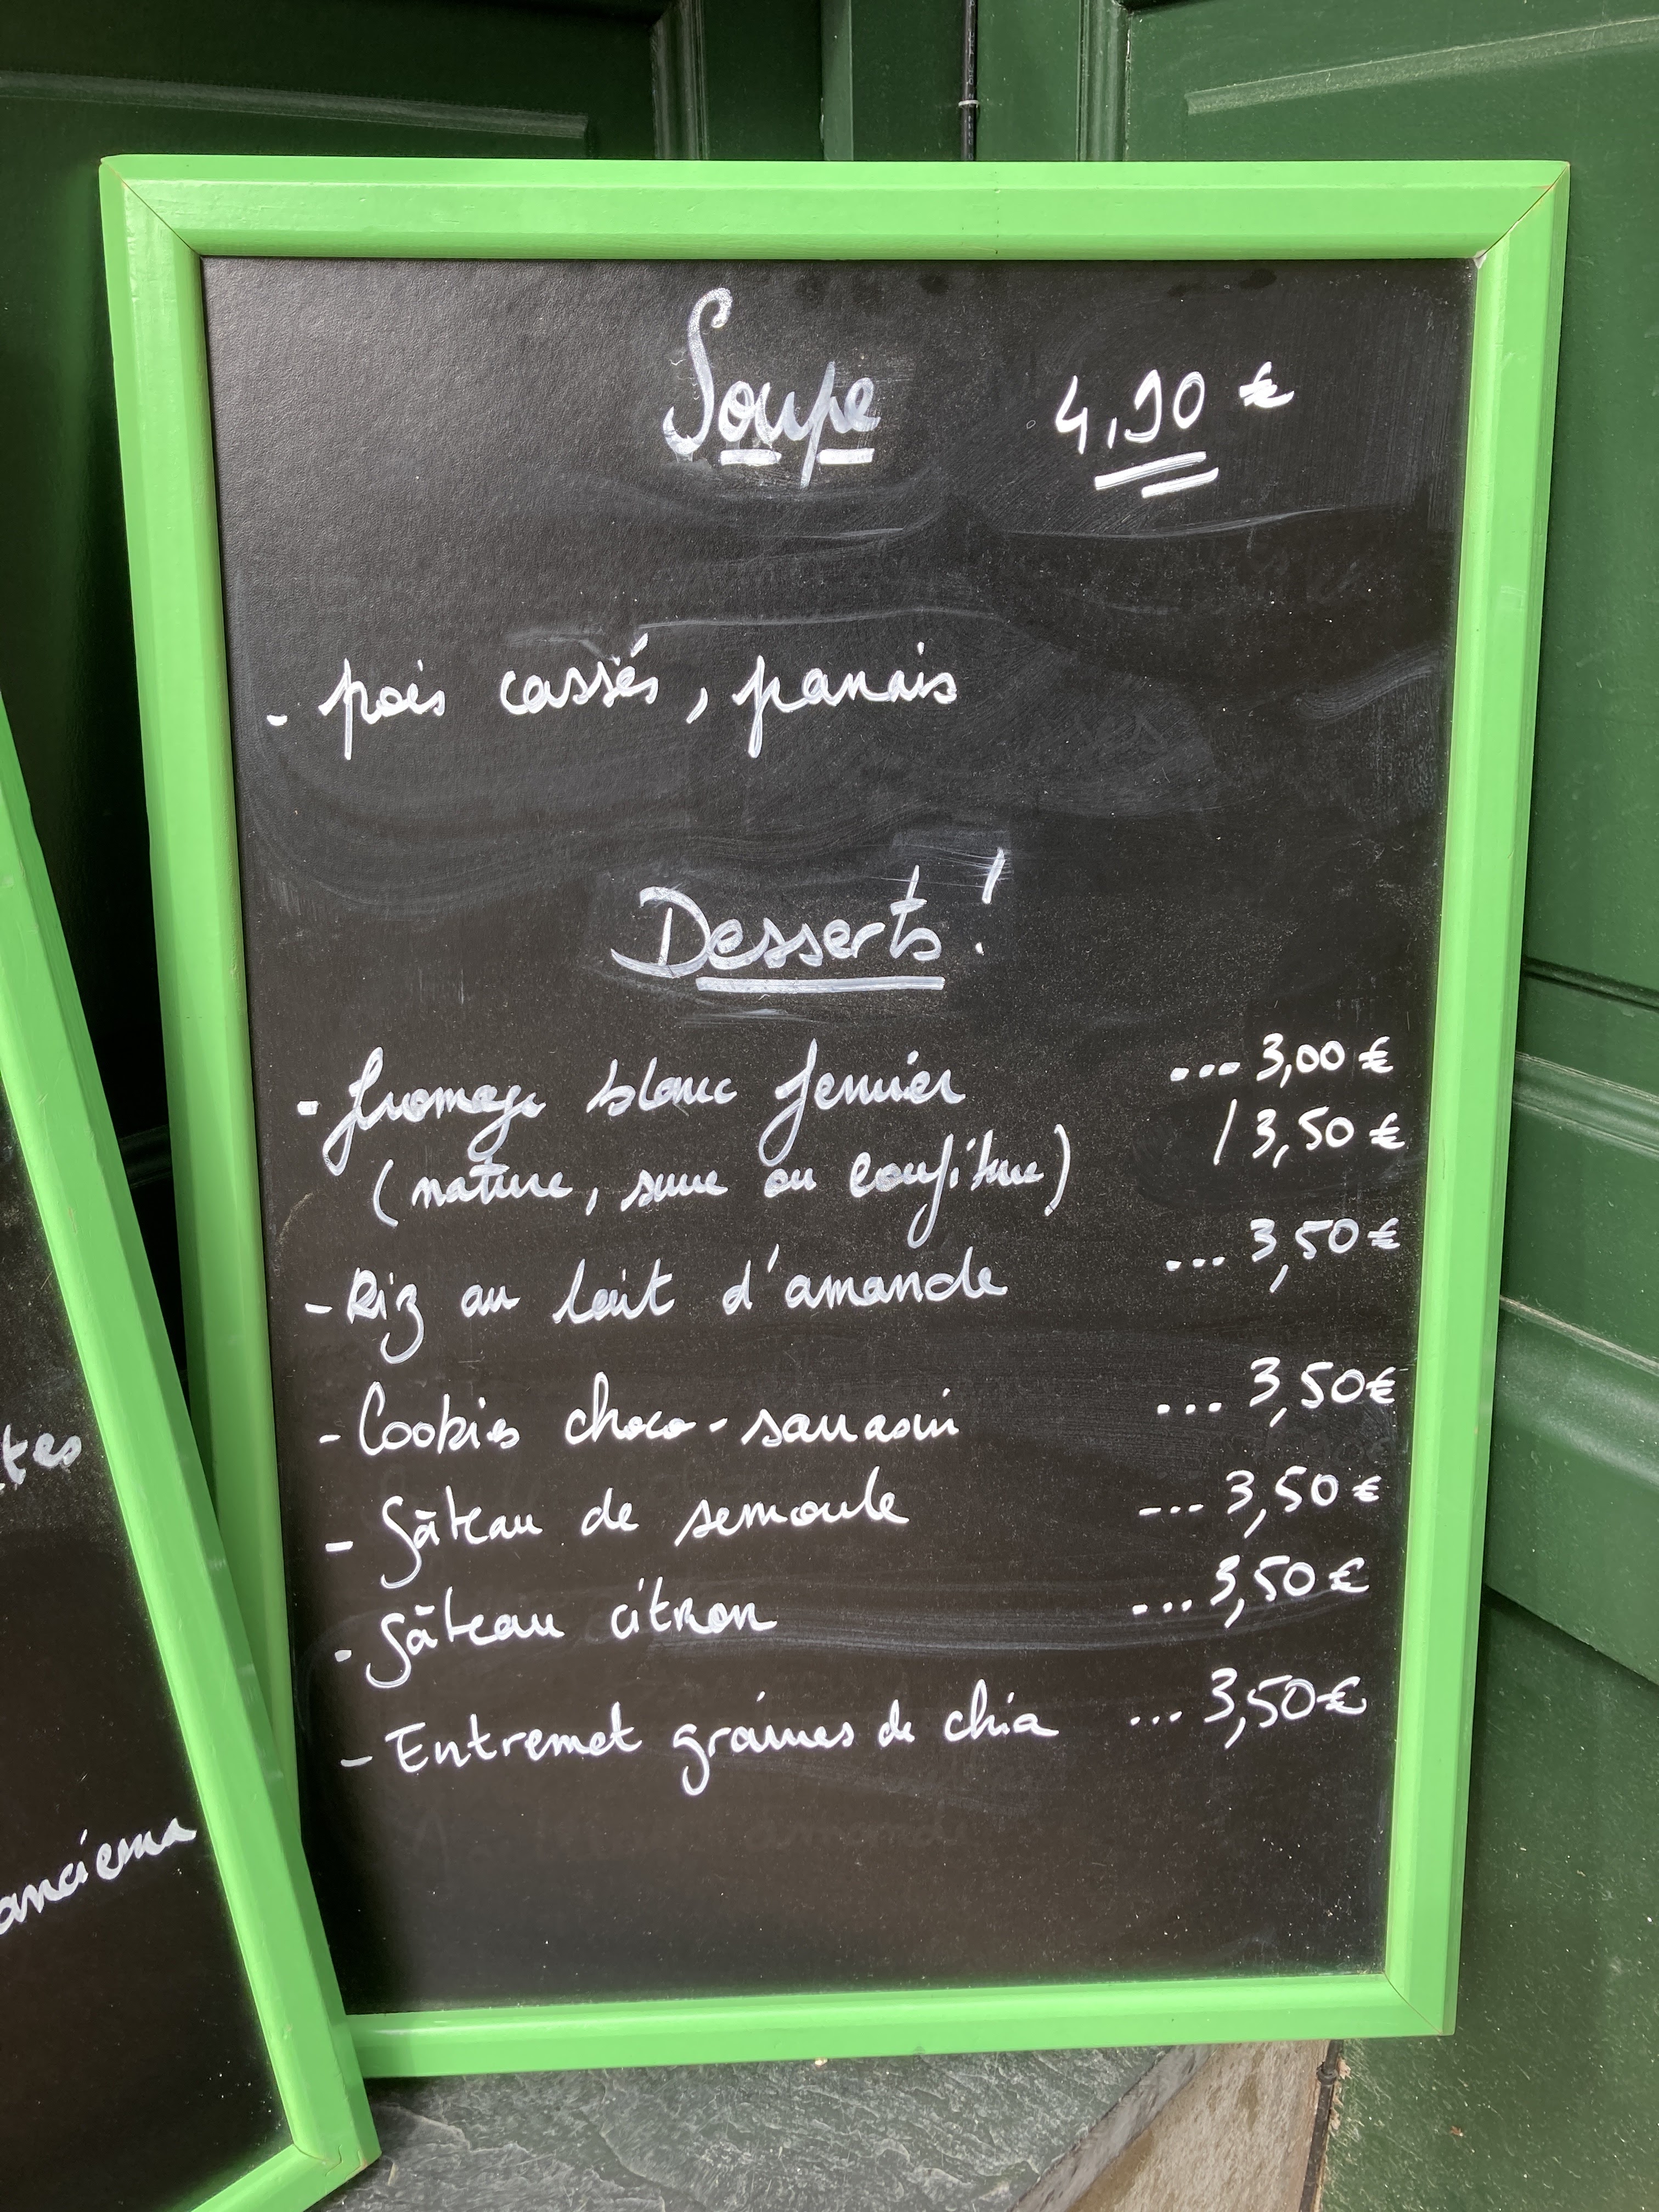 Soupe 4,90 €
- pois cassés, panais
Desserts !
- fromage blanc fermier ... 3,00 €
(nature, sucre ou confiture) / 3,50 €
- Riz au lait d'amande ... 3,50 €
- Cookies choco-sarrasin ... 3,50 €
- Gâteau de semoule ... 3,50 €
- Gâteau citron ... 3,50 €
- Entremet graines de chia ... 3,50 €
tes